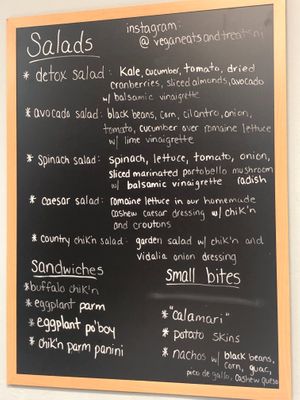 Salads
instagram:
@ veganeatsandtreatsnj
* detox salad: Kale, cucumber, tomato, dried
cranberries, sliced almonds, avocado
w/ balsamic vinaigrette
* avocado salad: black beans, corn, cilantro, onion,
tomato, cucumber over romaine lettuce
w/ lime vinaigrette
* Spinach salad: spinach, lettuce, tomato, onion,
sliced marinated portobello mushroom
w/ balsamic vinaigrette radish
* caesar salad: romaine lettuce in our homemade
cashew caesar dressing w/ chik'n
and croutons
* country chik'n salad: garden salad w/ chik'n and
vidalia onion dressing
Sandwiches
* buffalo chik'n
* eggplant parm
* eggplant po'boy
* chik'n parm panini
small bites
* "calamari"
* potato skins
* nachos w/ black beans,
corn, guac,
pico de gallo, cashew queso